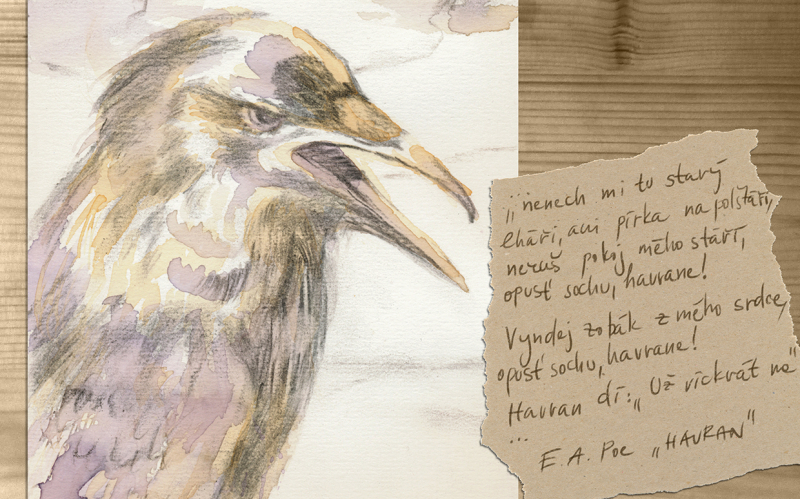 „nenech mi tu starý
lháři, ani pírka na polštáři,
neruš pokoj mého stáří,
opusť sochu, havrane!
Vyndej zobák z mého srdce,
opusť sochu, havrane!
Havran dí: „Už víckrát ne"
...
E.A. Poe „HAVRAN"